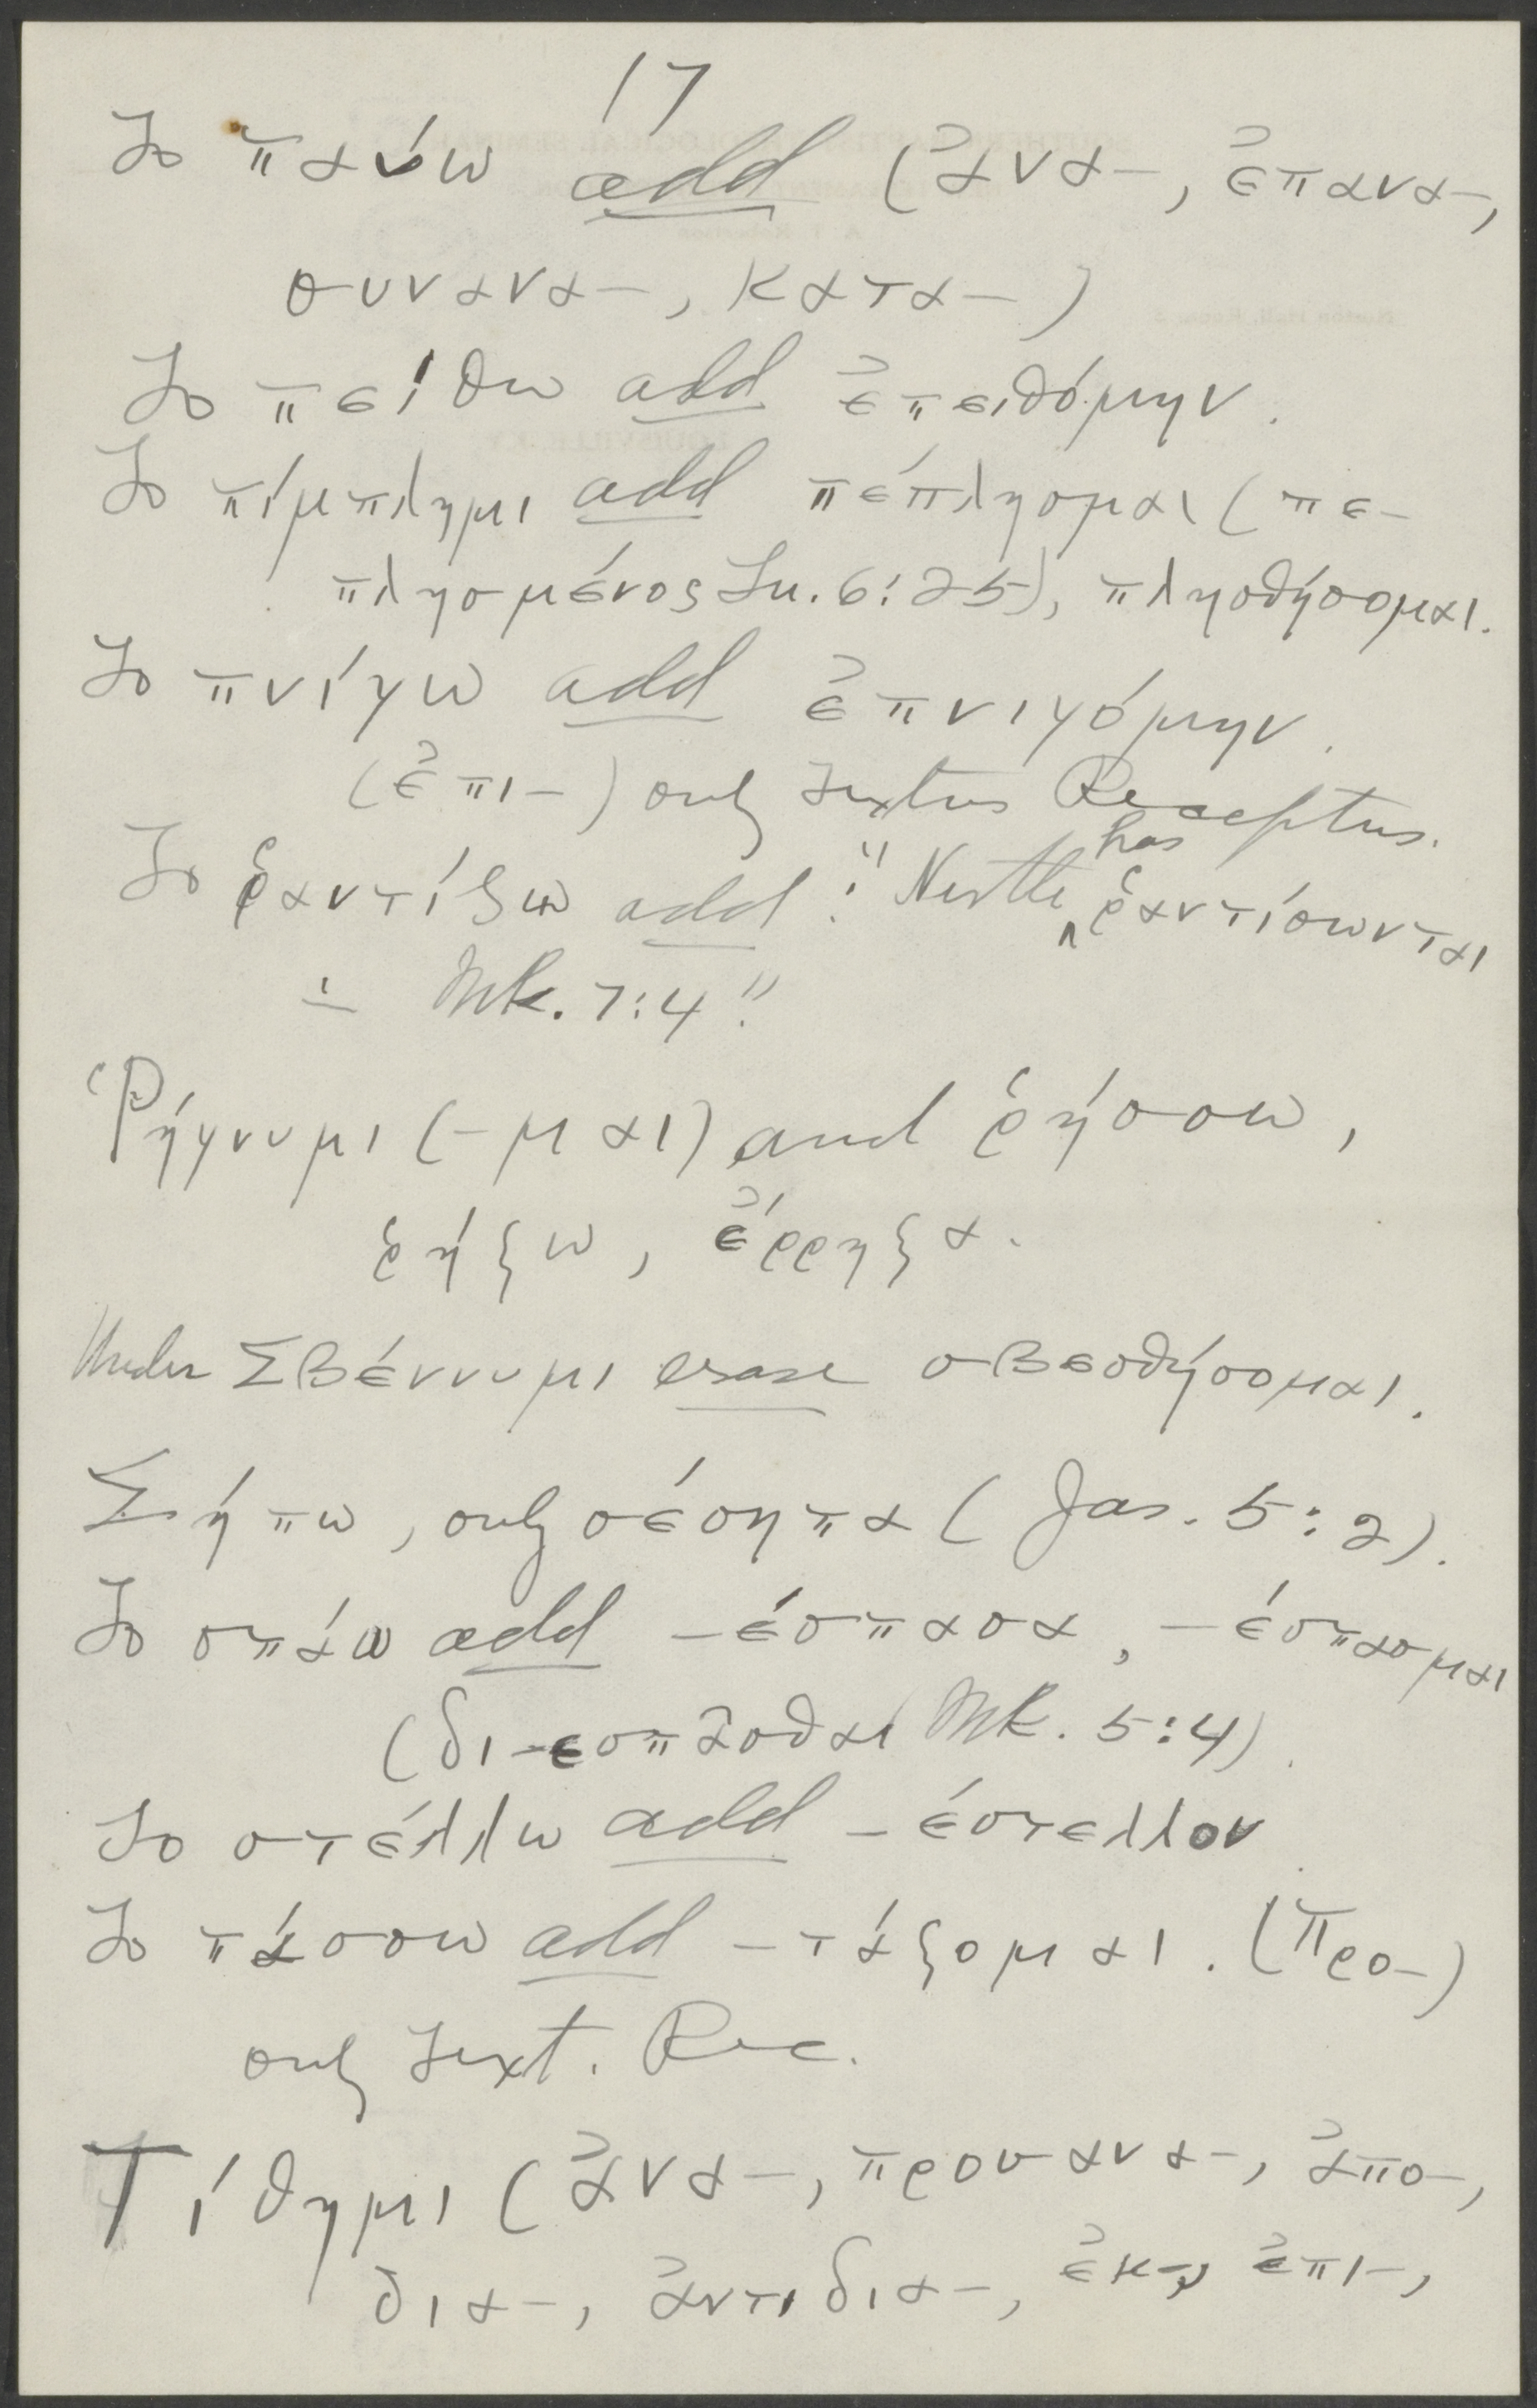 17
To παύω add (ἀνα-, ἐπανα-,
συνανα-, κατα-)
To πείθω add ἐπειθόμην.
To πίμπλημι add πέπλησμαι (πε-
πλησμένος Lu. 6:25), πλησθήσομαι.
To πνίγω add ἐπνιγόμην.
(ἐπι-) only Textus Receptus.
has
To ῥαντίζω add: "Nestle ῥαντίσωνται
- Mk. 7:4".
Ῥήγνυμι (-μαι) and ῥήσσω,
ῥήξω, ἔρρηξα.
Under Σβέννυμι erase σβεσθήσομαι.
Σήπω, only σέσηπα (Jas. 5:2).
To σπάω add -έσπασα, -έσπασμαι
(δι-εσπᾶσθαι Mk. 5:4).
To στέλλω add -έστελλον.
To τάσσω add -τάξομαι. (Προ-)
only Text. Rec.
Τίθημι (ἀνα-, προσανα-, ἀπο-,
δια-, ἀντιδια-, ἐκ-, ἐπι-,